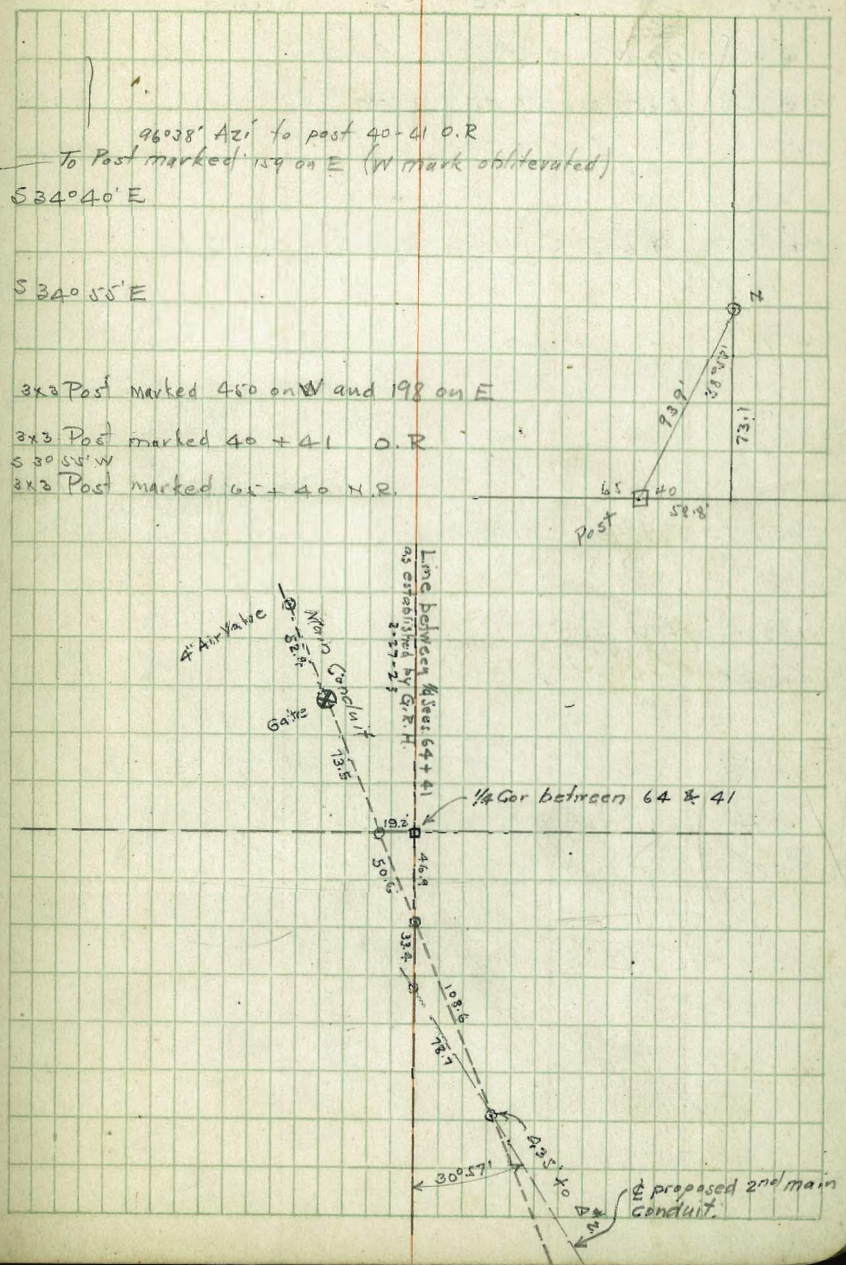 96°38' Azi to post 40-41 O.R
To Post marked 159 on E (W mark obliterated)
S 34°40' E
S 34° 55' E
3x3 Post marked 450 on W and 198 on E
3x3 Post marked 40 + 41 O.R
S 3° 55' W
3x3 Post marked 65 + 40 N.R.
Z
93.9'
73.1
65 40
58.8'
Post
Line between 1/4 Secs. 64 + 41
as established by G.R.H.
2-27-23
4" Air Valve
52.4
Main Conduit
Gate
73.5
1/4 Cor between 64 & 41
19.2
46.9
50.6
33.4
108.6
78.7
30°57'
435' to Δ#2
℄ proposed 2nd main
conduit.